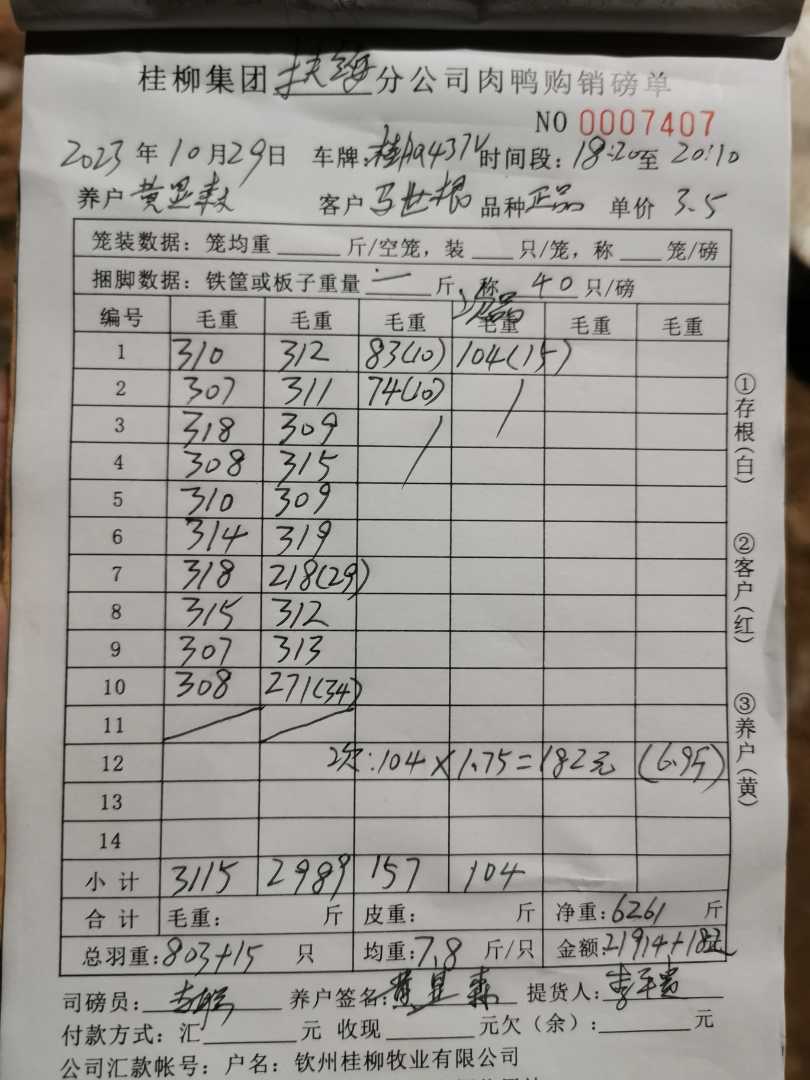 桂柳集团扶绥分公司肉鸭购销磅单
NO 0007407
2023年10月29日 车牌:桂AQ437V 时间段:18:20至20:10
养户 黄显森 客户 马世根 品种 正品 单价 3.5
笼装数据:笼均重 斤/空笼,装 只/笼,称 笼/磅
捆脚数据:铁筐或板子重量 一 斤,称 40 只/磅
次品
编号 毛重 毛重 毛重 毛重 毛重 毛重
1 310 312 83(10) 104(15)
2 307 311 74(10)
3 318 309
4 308 315
5 310 309
6 314 319
7 318 218(29)
8 315 312
9 307 313
10 308 271(34)
11
12 次:104×1.75=182元 (6.9斤)
13
14
小计 3115 2989 157 104
合计 毛重: 斤 皮重: 斤 净重:6261 斤
总羽重:803+15 只 均重:7.8 斤/只 金额:21914+182元
司磅员: 养户签名:黄显森 提货人:
付款方式:汇 元 收现 元欠(余): 元
公司汇款帐号:户名:钦州桂柳牧业有限公司
①存根(白)
②客户(红)
③养户(黄)